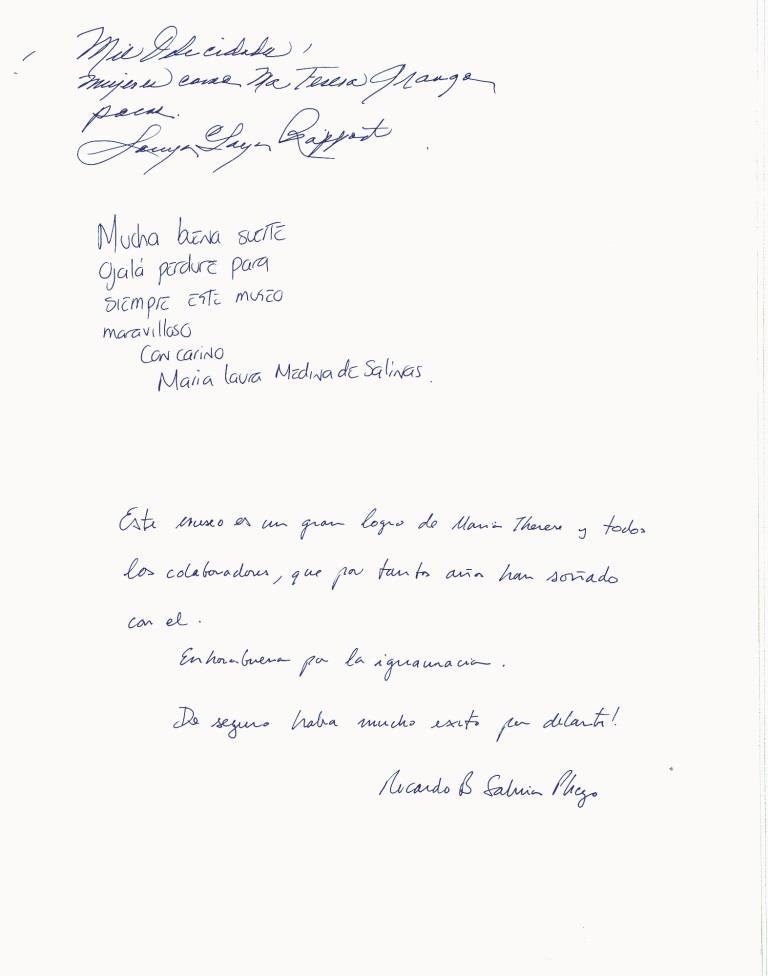 mujeres como Ma Teresa
pocas.
Mucha buena suerte
Ojalá perdure para
siempre este museo
maravilloso
Con cariño
Maria Laura Medina de Salinas.
Este museo es un gran logro de Maria Therese y todos
los colaboradores, que por tantos años han soñado
con el.
Enhorabuena por la
De seguro habra mucho exito por delante!
Ricardo B Salinas Pliego